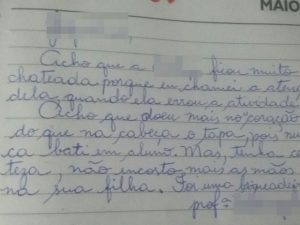 MAIO
Acho que a ficou muito
chateada porque eu chamei a aten
dela, quando ela errou a atividade!
Acho que doeu mais no "coração
do que na cabeça o tapa, pois nun
ca bati em aluno. Mas, tenha cer
teza, não encosto mais as mãos
na sua filha. Foi uma brincadei
profª